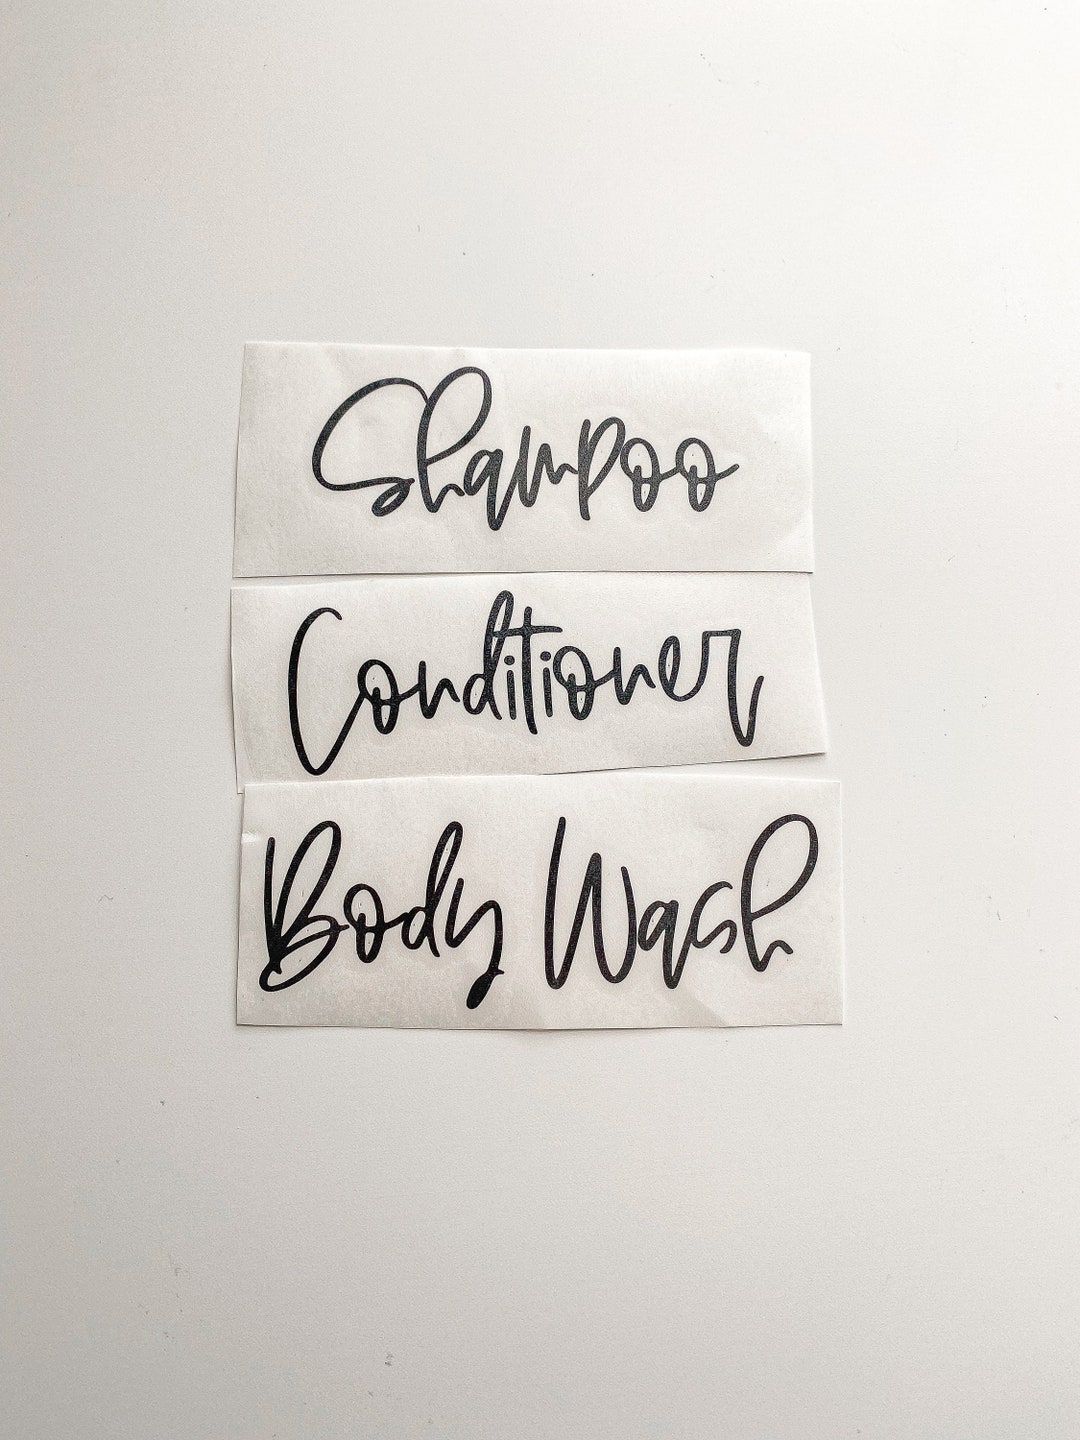 Shampoo
Conditioner
Body Wash